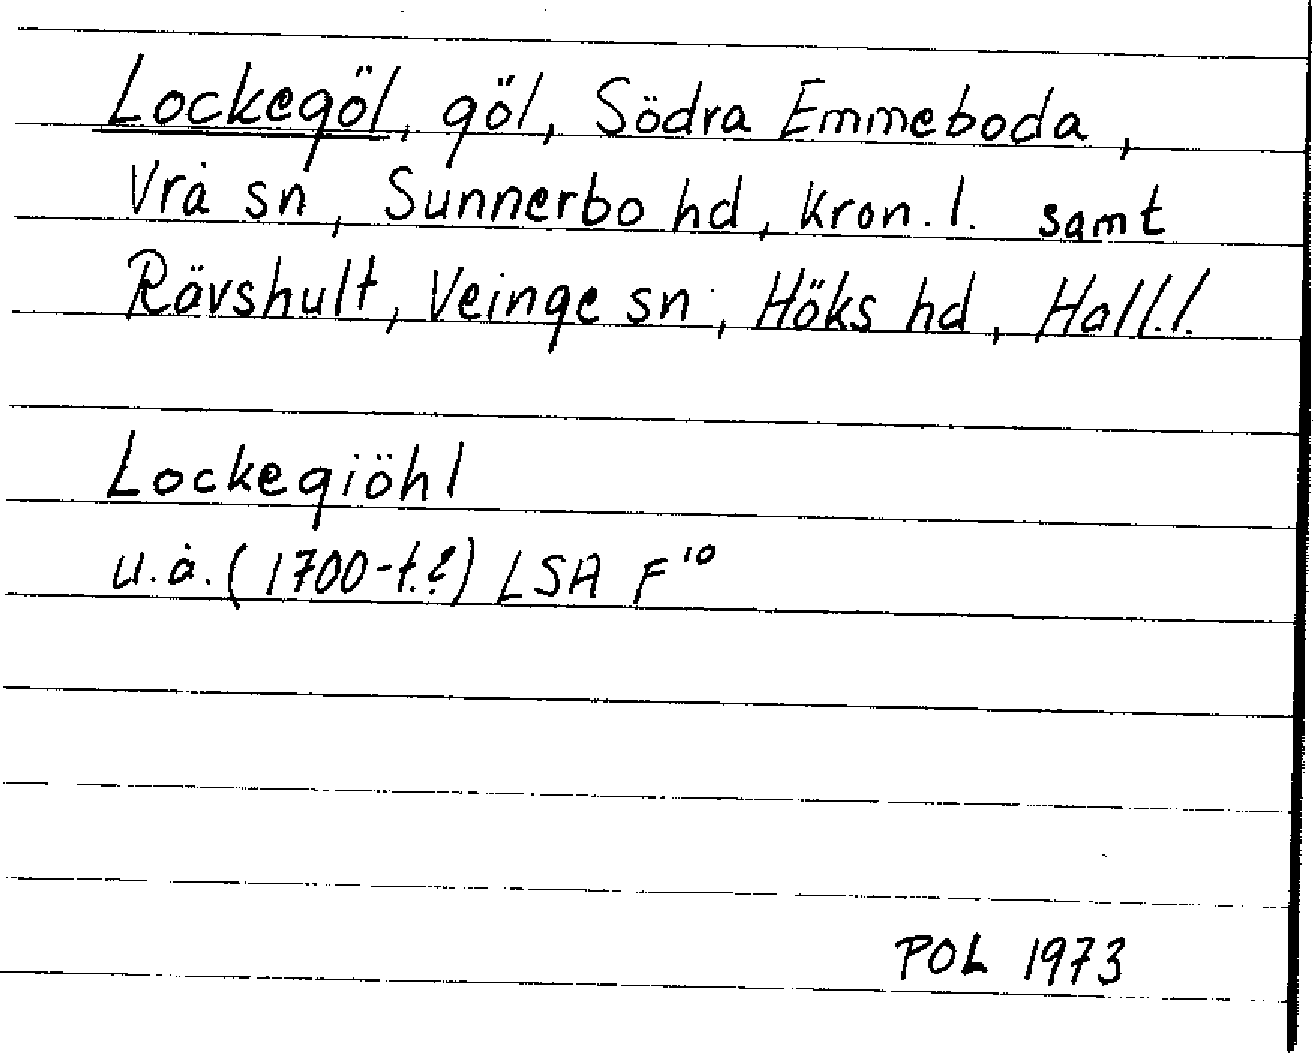 Lockegöl, göl, Södra Emmeboda,
Vrå sn, Sunnerbo hd, Kron.l. samt
Rävshult, Veinge sn, Höks hd, Hall.l.
Lockegiöhl
u.å. (1700-t.?) LSA F¹⁰
POL 1973